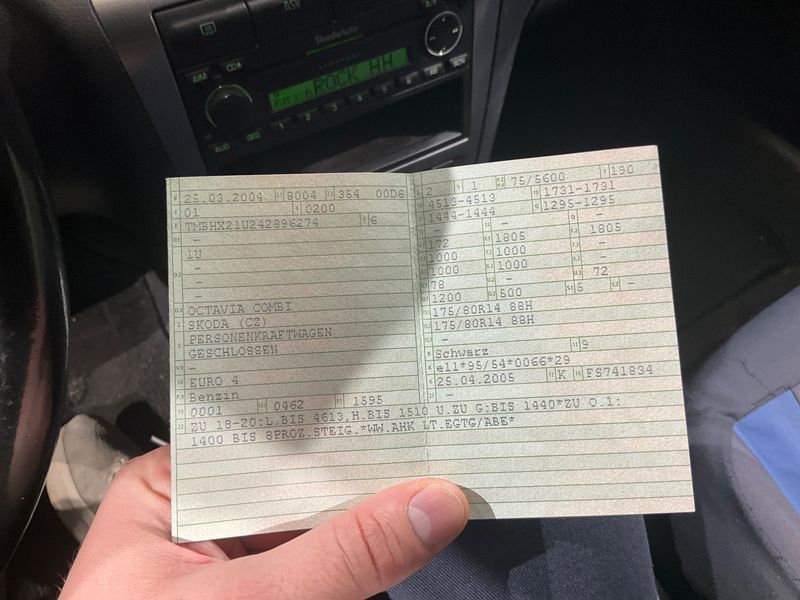 ROCK HH
25.03.2004 8004 354 00D6
01 0200
TMBHX21U242896274 6
-
1U
-
-
-
OCTAVIA COMBI
SKODA (CZ)
PERSONENKRAFTWAGEN
GESCHLOSSEN
-
EURO 4
Benzin
0001 0462 1595
2 1 75/5600 190
4513-4513 1731-1731
1444-1444 1295-1295
- -
172 1805 1805
1000 1000 -
1000 1000 -
78 - 72
1200 500 5 -
175/80R14 88H
175/80R14 88H
-
Schwarz 9
e11*95/54*0066*29
25.04.2005 K FS741834
-
22 ZU 18-20:L.BIS 4613,H.BIS 1510 U.ZU G:BIS 1440*ZU O.1:
1400 BIS 8PROZ.STEIG.*WW.AHK LT.EGTG/ABE*